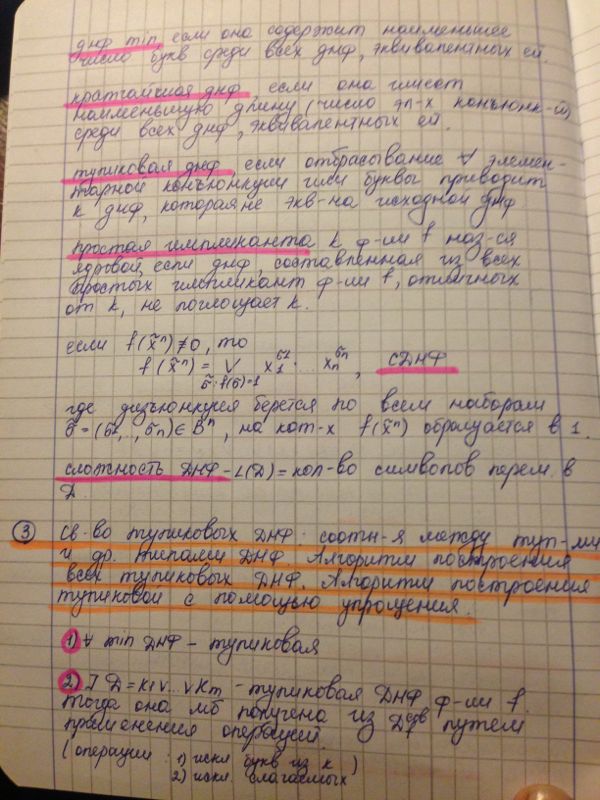 днф min, если она содержит наименьшее
число букв среди всех днф, эквивалентных ей.
кратчайшая днф, если она имеет
наименьшую длину (число эл-х конъюнк-й)
среди всех днф, эквивалентных ей.
тупиковая днф, если отбрасывание ∀ элемен-
тарной конъюнкции или буквы приводит
к днф, которая не экв-на исходной днф
простая импликанта k ф-ии f наз-ся
ядровой, если днф, составленная из всех
простых импликант ф-ии f, отличных
от k, не поглощает k.
если f(x̃ⁿ)≠0, то
f(x̃ⁿ) = ∨ x₁^σ1 ... xₙ^σn, СДНФ
σ̃: f(σ̃)=1
где дизъюнкция берется по всем наборам
σ̃ = (σ1,.., σn) ∈ Bⁿ, на кот-х f(x̃ⁿ) обращается в 1.
сложность ДНФ - L(D) = кол-во символов перем. в
D.
3 Св-во тупиковых ДНФ: соотн-я между туп-ми
и др. типами ДНФ. Алгоритм построения
всех тупиковых ДНФ. Алгоритм построения
тупиковой с помощью упрощения.
1) ∀ min ДНФ - тупиковая
2) ] D = K1 ∨...∨ Km - тупиковая ДНФ ф-ии f.
Тогда она мб получена из путем
применения операций.
(операции: 1) искл букв из k )
2) искл. слагаемых